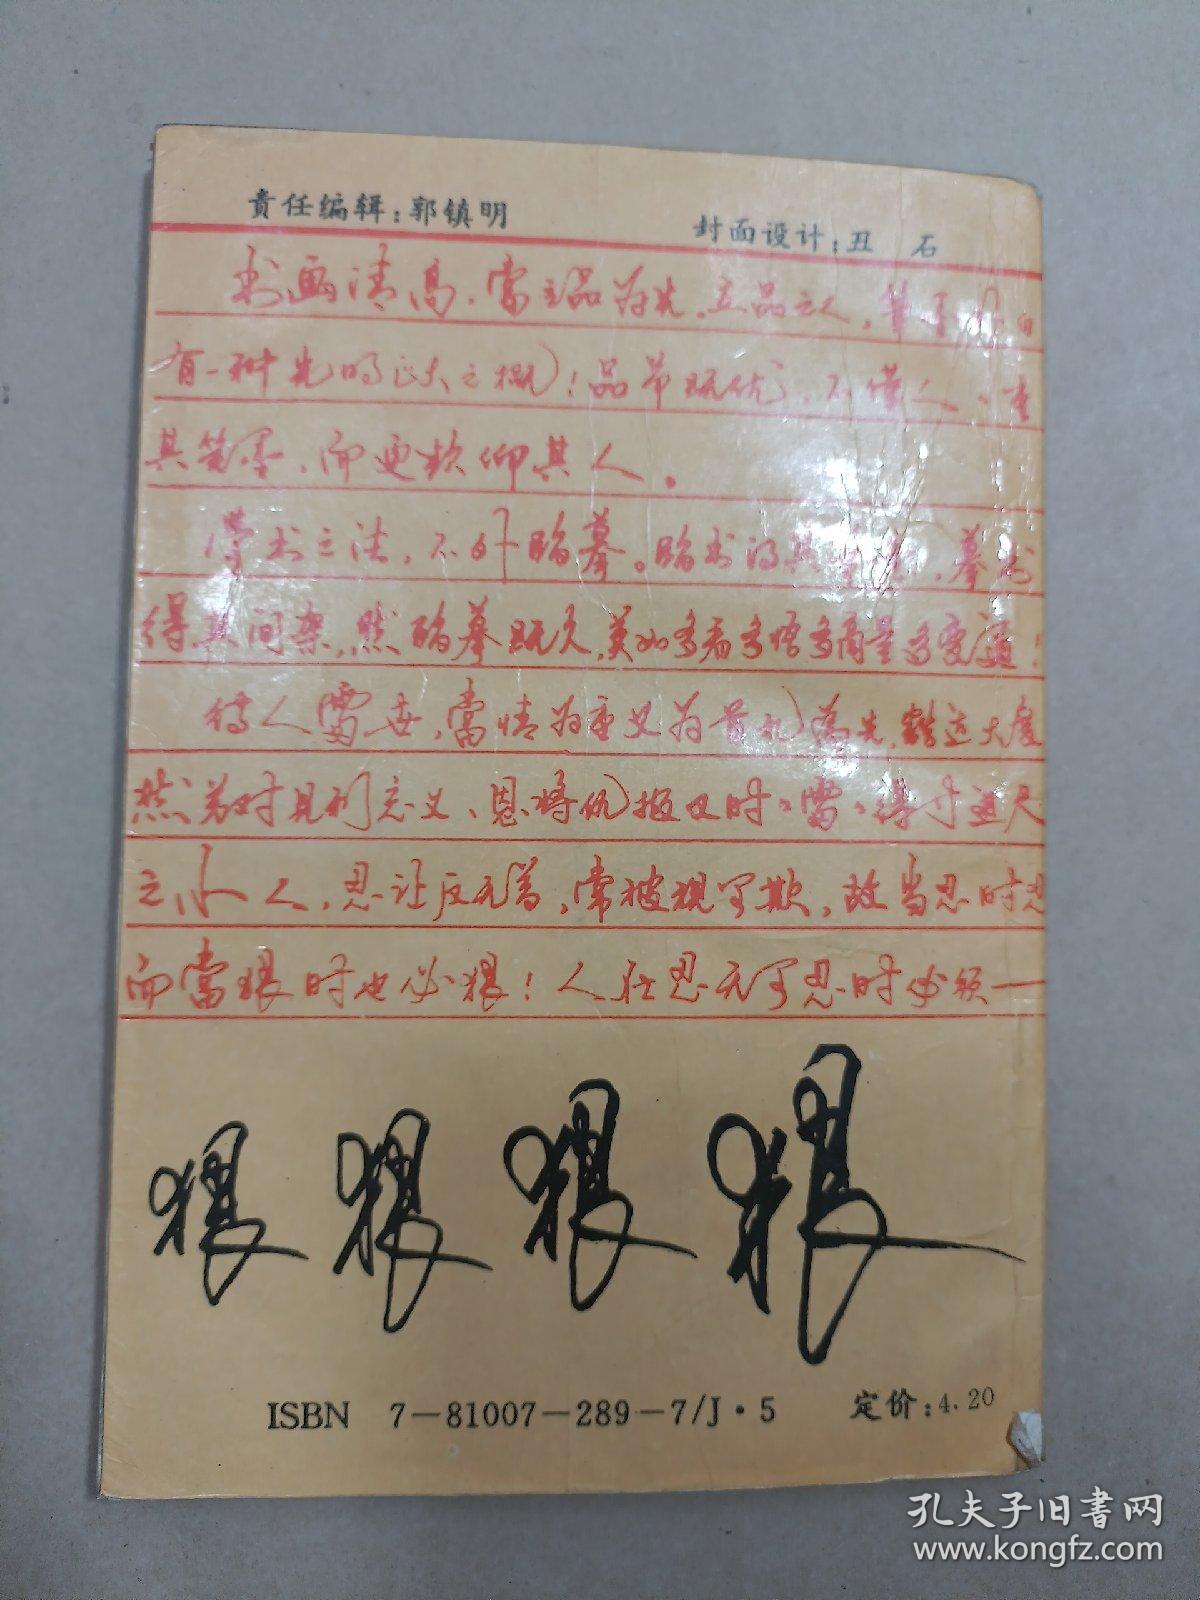 责任编辑：郭镇明
封面设计：丑 石
书画清高，当立品为先，立品之人，笔墨外自
有一种光明正大之概！品节既优，不仅人人重
其笔墨，而更钦仰其人。
学书之法，不外临摹。临书得其笔意，摹书
得其间架，然临摹既久，莫如多看多悟多商量多变通！
待人处世，当情为重义为首礼为先，豁达大度
然若对见利忘义、恩将仇报又时时处处得寸进尺
之小人，忍让反无益，常被视可欺，故当忍时忍
而当狠时也必狠！人在忍无可忍时必须——
狠 狠 狠 狠
ISBN 7－81007－289－7/J·5
定价：4.20
孔夫子旧书网
www.kongfz.com